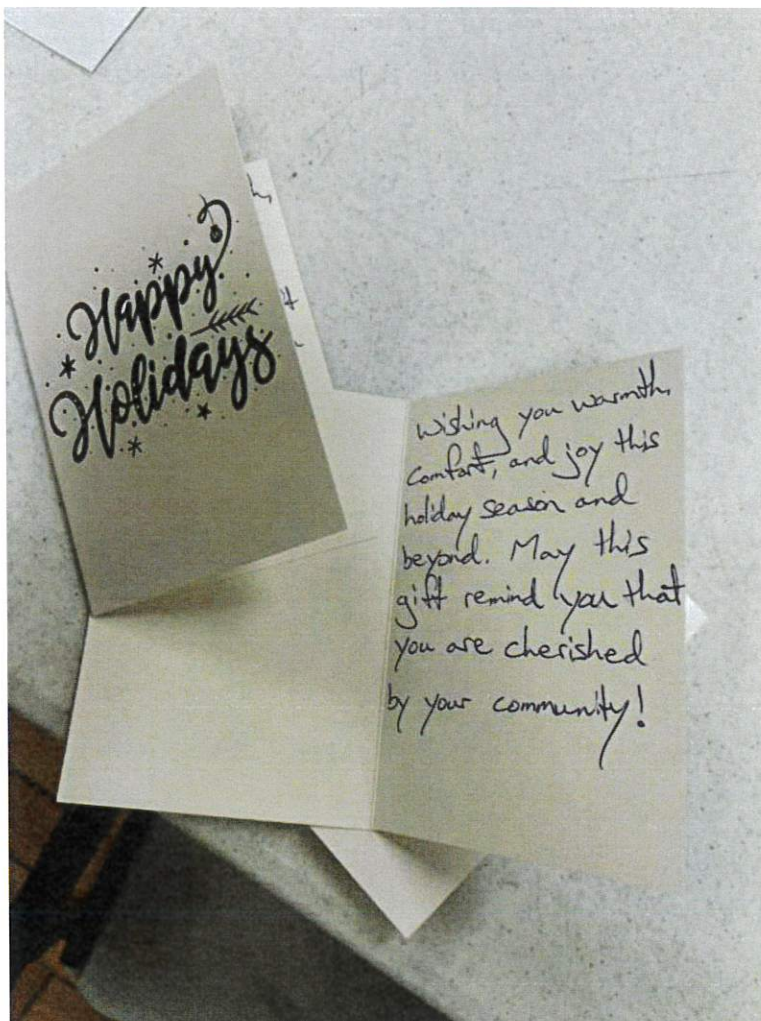 Happy
Holidays
Wishing you warmth,
comfort, and joy this
holiday season and
beyond. May this
gift remind you that
you are cherished
by your community!